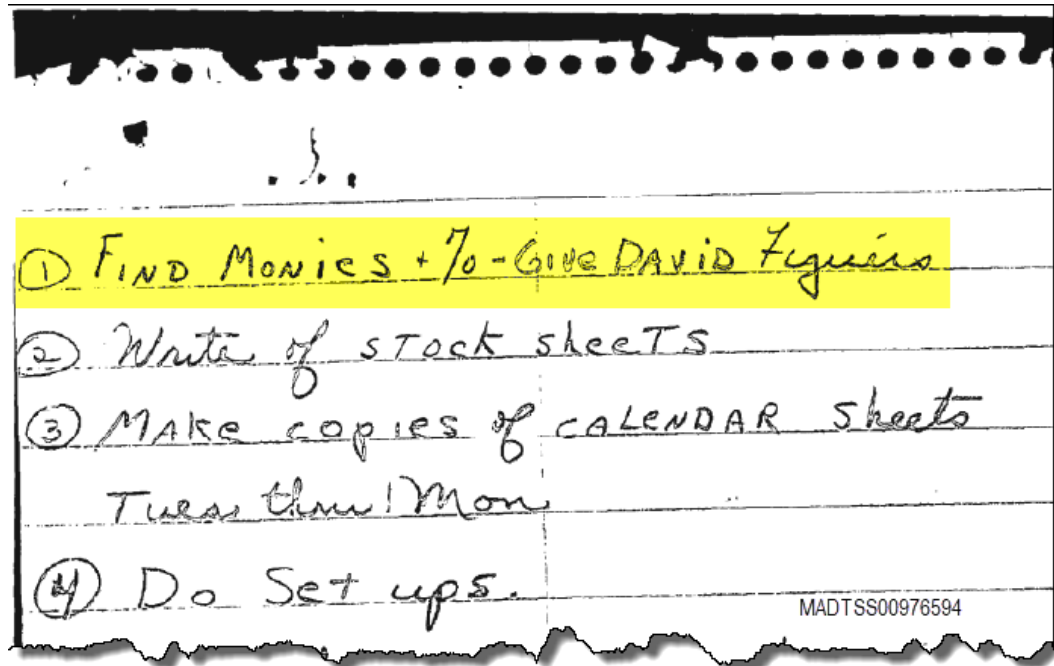 ① FIND MONIES + % - GIVE DAVID Figures
② Write of STOCK sheeTS
③ MAKE copies of CALENDAR Sheets
Tues thru Mon
④ Do Set ups.
MADTSS00976594